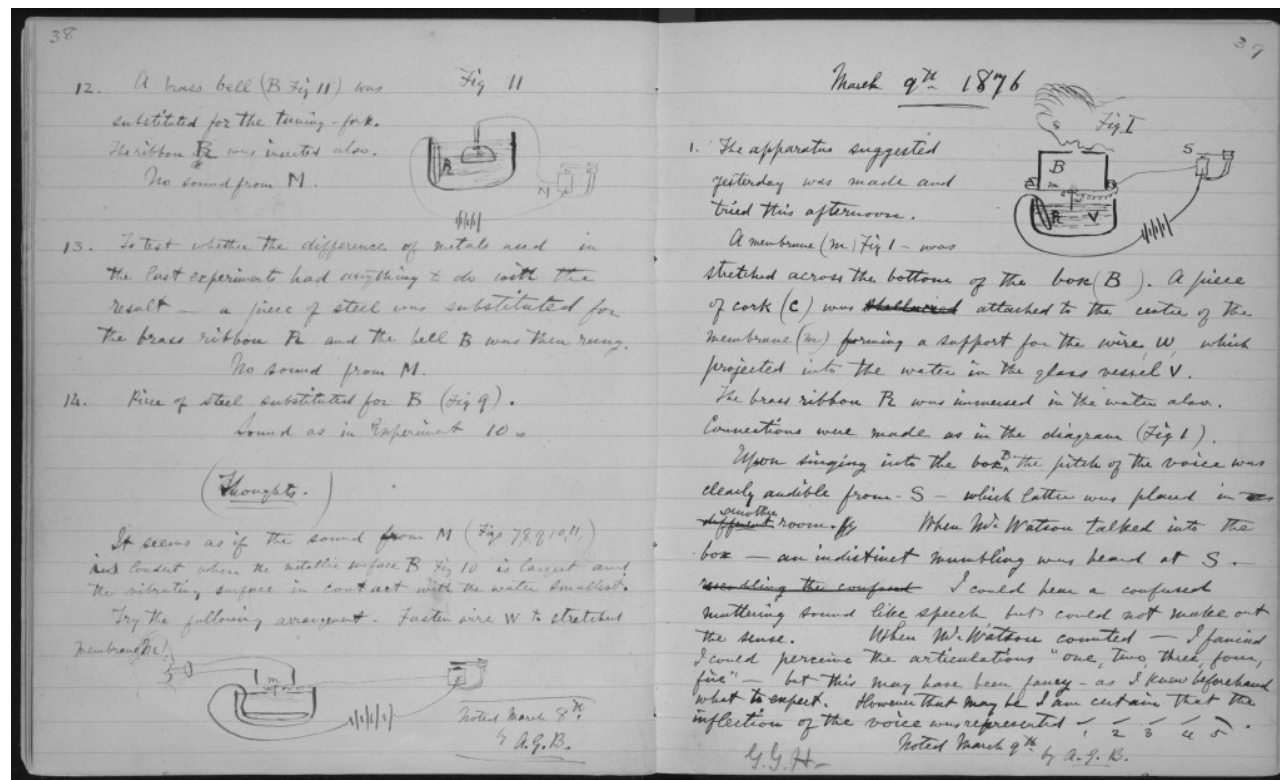 38
12. A brass bell (B Fig 11) was
Fig 11
substituted for the tuning-fork.
The ribbon R was inserted also.
No sound from M.
R
M
13. To test whether the difference of metals used in
the last experiments had anything to do with the
result — a piece of steel was substituted for
the brass ribbon R and the bell B was then rung.
No sound from M.
14. Piece of steel substituted for B (Fig 9).
Sound as in Experiment 10.
(Thoughts.)
It seems as if the sound from M (Figs 7,8,9,10,11,)
is loudest when the metallic surface B Fig 10 is largest and
the vibrating surface in contact with the water smallest.
Try the following arrangement. Fasten wire W to stretched
membrane m
m
Noted March 8th
by A.G.B.
39
March 9th 1876
Fig I
B
S
m
R
V
1. The apparatus suggested
yesterday was made and
tried this afternoon.
A membrane (m) Fig 1 — was
stretched across the bottom of the box (B). A piece
of cork (C) was shellaced attached to the centre of the
membrane (m) forming a support for the wire, W, which
projected into the water in the glass vessel V.
The brass ribbon R was immersed in the water also.
Connections were made as in the diagram (Fig 1).
Upon singing into the box B, the pitch of the voice was
clearly audible from S — which latter was placed in
different another room. When Mr. Watson talked into the
box — an indistinct mumbling was heard at S.
resembling the confused I could hear a confused
muttering sound like speech but could not make out
the sense. When Mr. Watson counted — I fancied
I could perceive the articulations "one, two, three, four,
five" — but this may have been fancy — as I knew beforehand
what to expect. However that may be I am certain that the
inflection of the voice was represented 1 2 3 4 5.
Noted March 9th by A.G.B.
G.G.H.